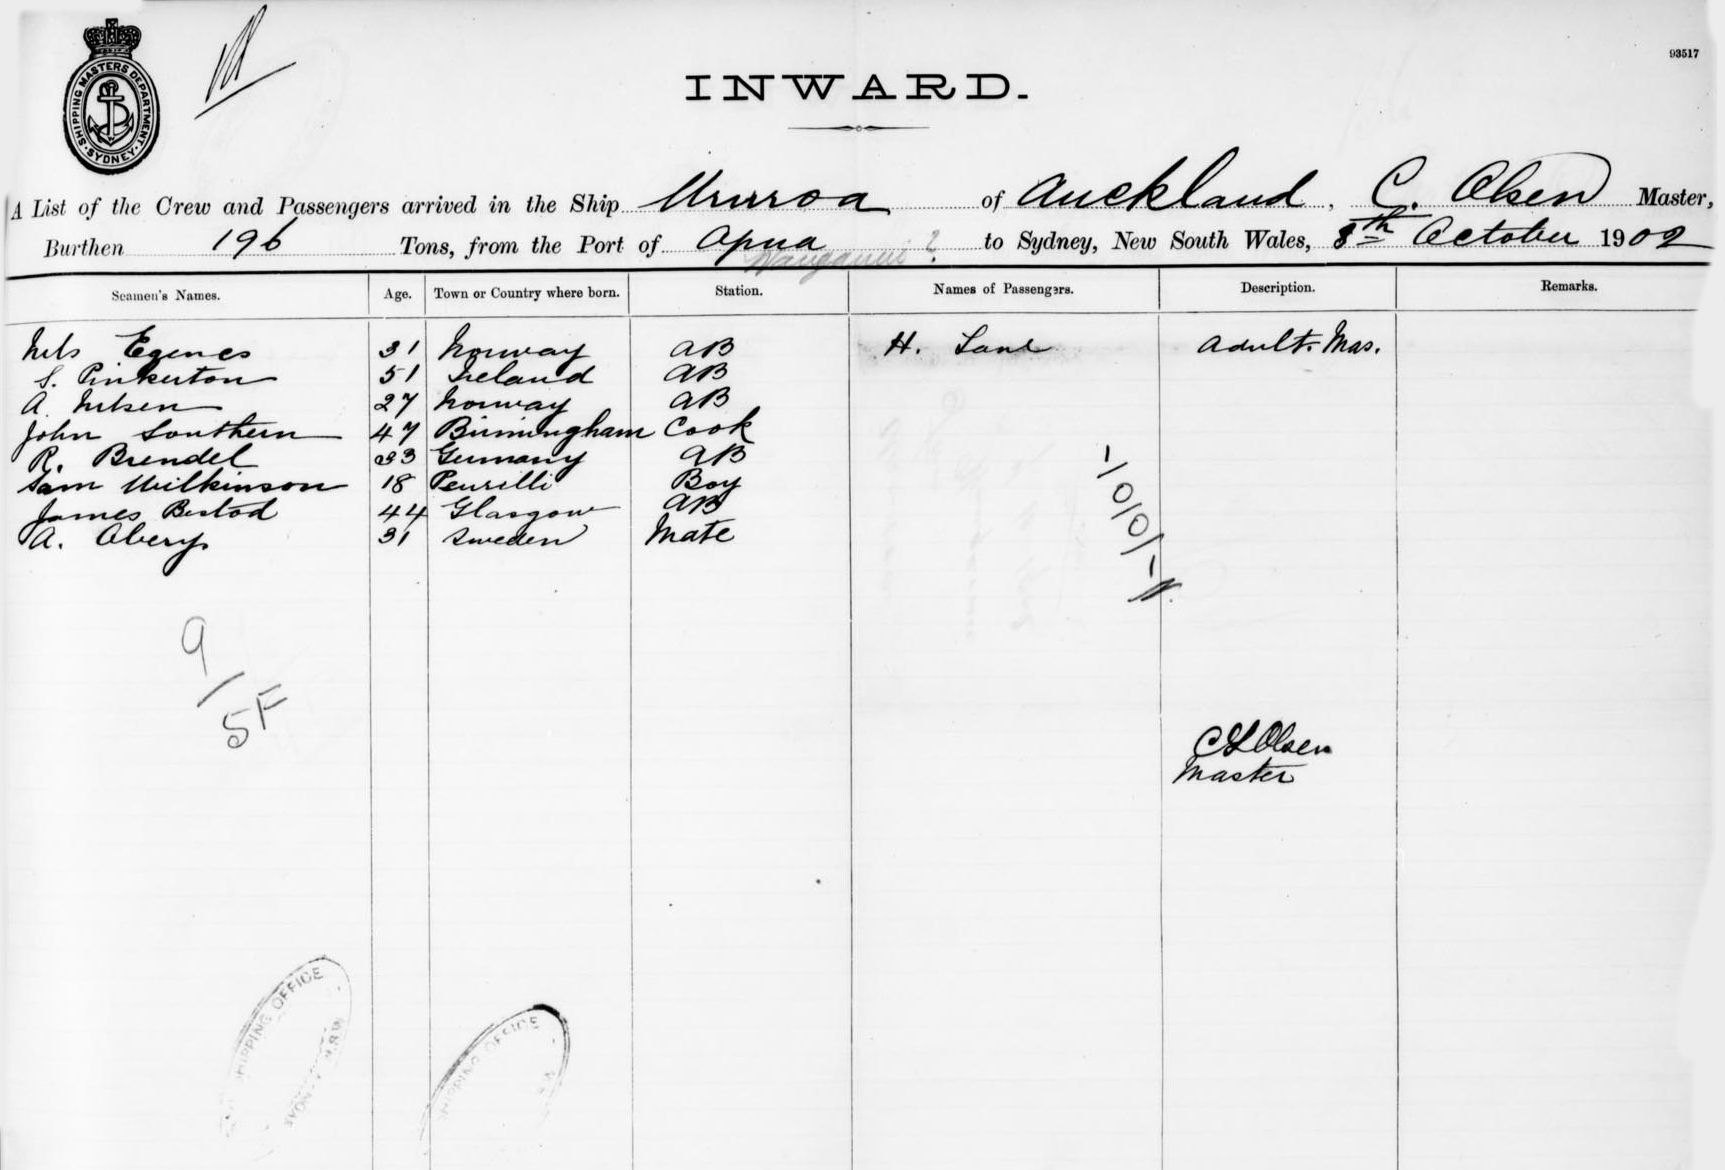 SHIPPING MASTERS DEPARTMENT. SYDNEY
93517
INWARD.
A List of the Crew and Passengers arrived in the Ship Ururoa of Auckland, C. Olsen Master,
Burthen 196 Tons, from the Port of Apua to Sydney, New South Wales, 8th October 1902
Wanganui ?
Seamen's Names. Age. Town or Country where born. Station. Names of Passengers. Description. Remarks.
Nels Egenes 31 Norway AB H. Lane Adult. Mas.
S. Pinkerton 51 Ireland AB
A. Nelsen 27 Norway AB
John Southern 47 Birmingham Cook
R. Brendel 33 Germany AB
Sam Wilkinson 18 Boy
James 44 Glasgow AB
A. Obery 31 Sweden Mate
-/0/0/-1
9/5F
C L Olsen
Master
SHIPPING OFFICE
SYDNEY N.S.W
SHIPPING OFFICE